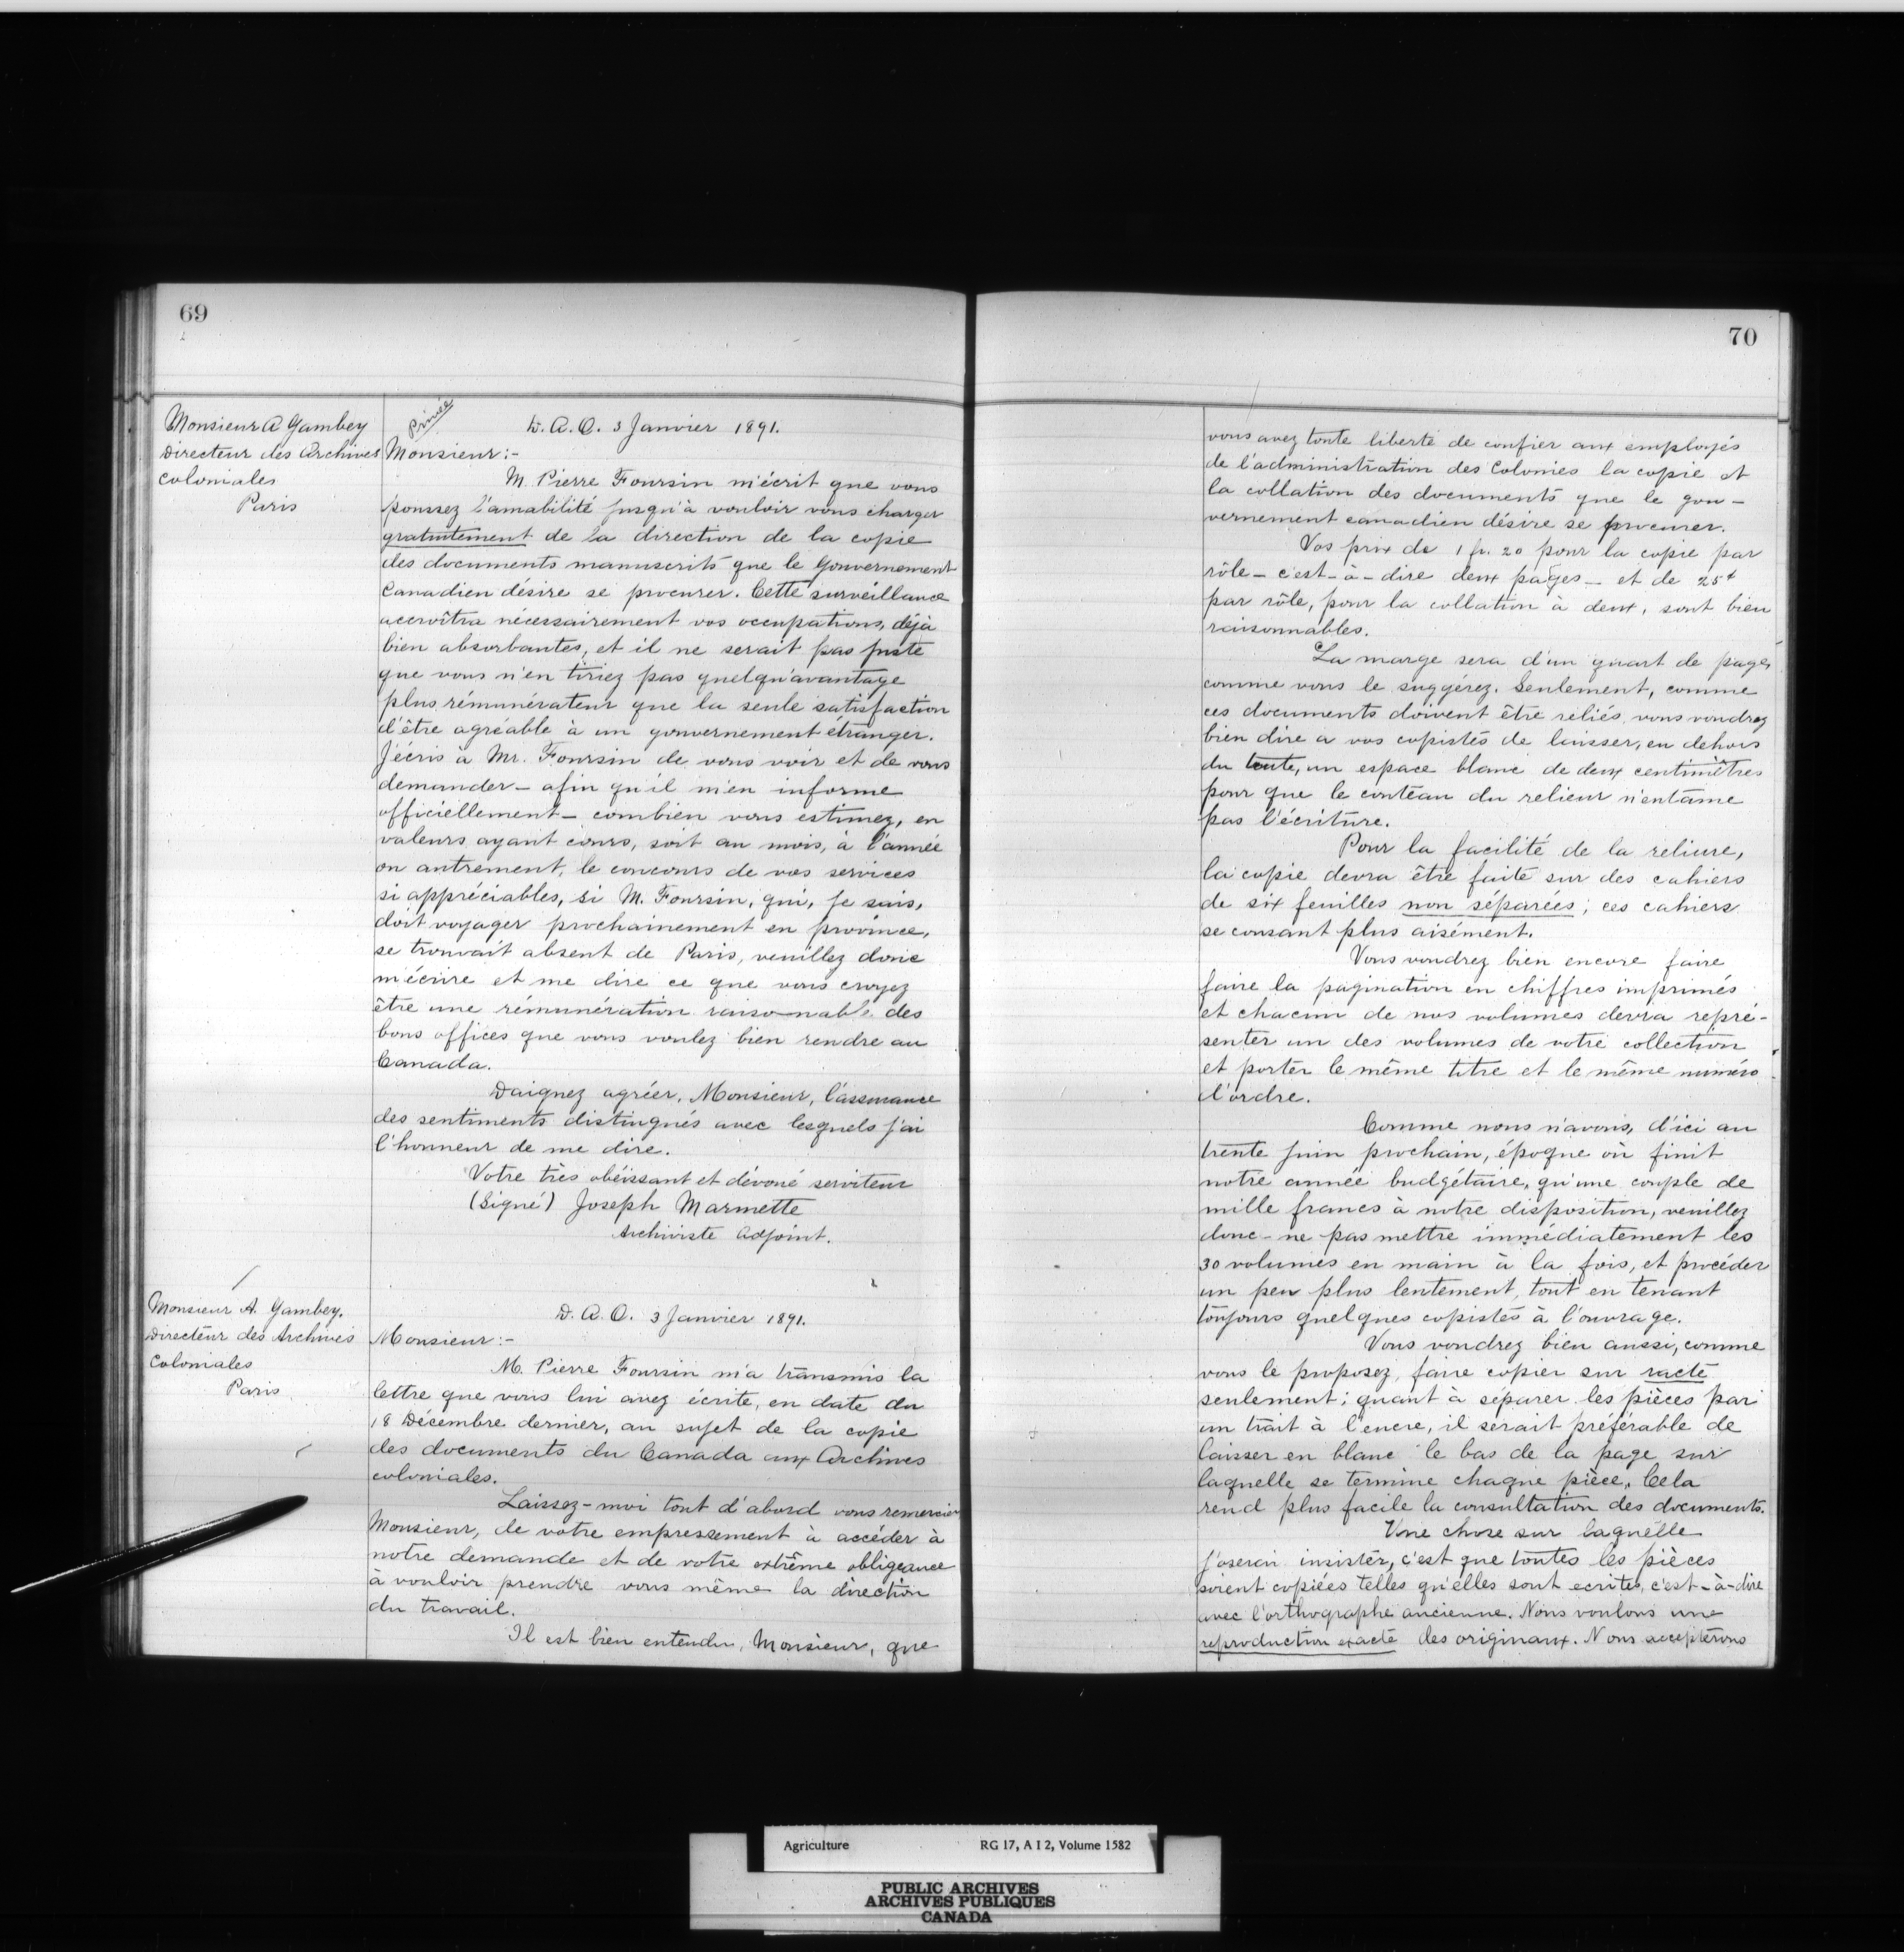 69
Monsieur A Gambey
Directeur des Archives
Coloniales
Paris
Privée
D. A. O. 3 Janvier 1891.
Monsieur:-
M. Pierre Foursin m'écrit que vous
poussez l'amabilité jusqu'à vouloir vous charger
gratuitement de la direction de la copie
des documents manuscrits que le Gouvernement
Canadien désire se procurer. Cette surveillance
accroîtra nécessairement vos occupations, déjà
bien absorbantes, et il ne serait pas juste
que vous n'en tiriez pas quelqu'avantage
plus rémunérateur que la seule satisfaction
d'être agréable à un gouvernement étranger.
J'écris à Mr. Foursin de vous voir et de vous
demander - afin qu'il m'en informe
officiellement - combien vous estimez, en
valeurs ayant cours, soit au mois, à l'année
ou autrement, le concours de vos services
si appréciables, si M. Foursin, qui, je sais,
doit voyager prochainement en province,
se trouvait absent de Paris, veuillez donc
m'écrire et me dire ce que vous croyez
être une rémunération raisonnable des
bons offices que vous voulez bien rendre au
Canada.
Daignez agréer, Monsieur, l'assurance
des sentiments distingués avec lesquels j'ai
l'honneur de me dire.
Votre très obéissant et dévoué serviteur
(Signé) Joseph Marmette
Archiviste Adjoint.
Monsieur A. Gambey.
Directeur des Archives
Coloniales
Paris
D. A. O. 3 Janvier 1891.
Monsieur:-
M. Pierre Foursin m'a transmis la
lettre que vous lui avez écrite, en date du
18 Décembre dernier, au sujet de la copie
des documents du Canada aux Archives
coloniales.
Laissez-moi tout d'abord vous remercier
Monsieur, de votre empressement à accéder à
notre demande et de votre extrême obligeance
à vouloir prendre vous même la direction
du travail.
Il est bien entendu, Monsieur, que
70
vous avez toute liberté de confier aux employés
de l'administration des Colonies la copie et
la collation des documents que le gou-
vernement canadien désire se procurer.
Vos prix de 1 fr. 20 pour la copie par
rôle - c'est-à-dire deux pages - et de 25¢
par rôle, pour la collation à deux, sont bien
raisonnables.
La marge sera d'un quart de page,
comme vous le suggérez. Seulement, comme
ces documents doivent être reliés, vous voudrez
bien dire a vos copistes de laisser, en dehors
du texte, un espace blanc de deux centimètres
pour que le couteau du relieur n'entame
pas l'écriture.
Pour la facilité de la reliure,
la copie devra être faite sur des cahiers
de six feuilles non séparées; ces cahiers
se cousant plus aisément.
Vous voudrez bien encore faire
faire la pagination en chiffres imprimés
et chacun de nos volumes devra repré-
senter un des volumes de votre collection
et porter le même titre et le même numéro
d'ordre.
Comme nous n'avons, d'ici au
trente juin prochain, époque où finit
notre année budgétaire, qu'une couple de
mille francs à notre disposition, veuillez
donc ne pas mettre immédiatement les
30 volumes en main à la fois, et procéder
un peu plus lentement, tout en tenant
toujours quelques copistes à l'ouvrage.
Vous voudrez bien aussi, comme
vous le proposez, faire copier sur racte
seulement; quant à séparer les pièces par
un trait à l'encre, il serait préférable de
laisser en blanc le bas de la page sur
laquelle se termine chaque pièce. Cela
rend plus facile la consultation des documents.
Une chose sur laquelle
j'oserai insister, c'est que toutes les pièces
soient copiées telles qu'elles sont ecrites, c'est-à-dire
avec l'orthographe ancienne. Nous voulons une
reproduction exacte des originaux. Nous accepterons
Agriculture RG 17, A I 2, Volume 1582
PUBLIC ARCHIVES
ARCHIVES PUBLIQUES
CANADA